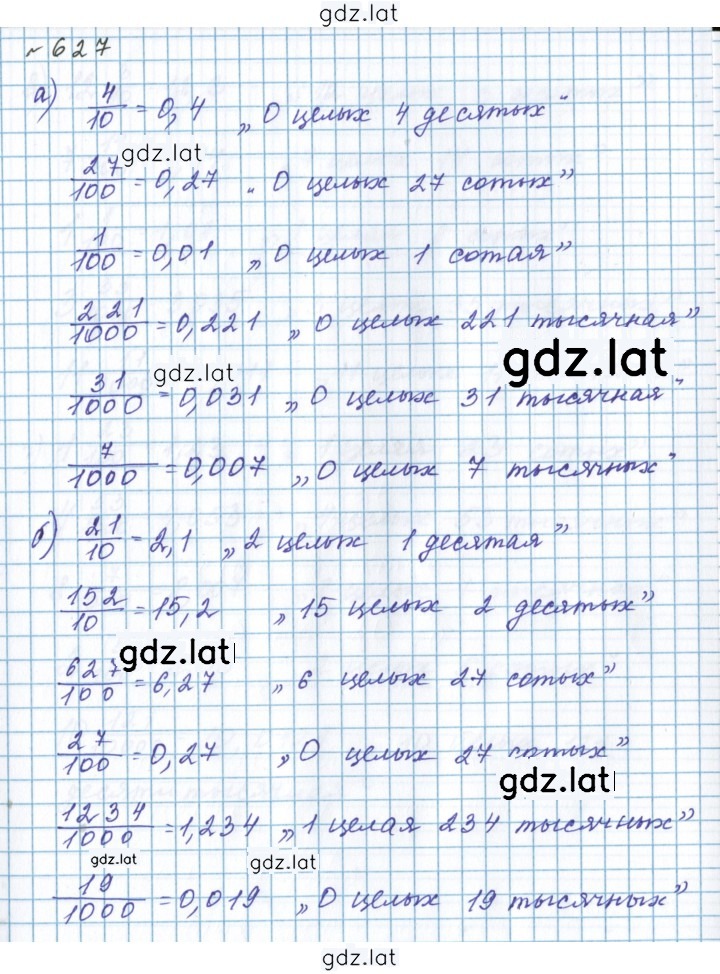 gdz.lat
№ 627
а) 4/10 = 0,4 „0 целых 4 десятых"
gdz.lat
27/100 = 0,27 „0 целых 27 сотых”
1/100 = 0,01 „0 целых 1 сотая”
221/1000 = 0,221 „0 целых 221 тысячная”
gdz.lat
gdz.lat
31/1000 = 0,031 „0 целых 31 тысячная"
7/1000 = 0,007 „0 целых 7 тысячных"
б) 21/10 = 2,1 „2 целых 1 десятая”
152/10 = 15,2 „15 целых 2 десятых”
gdz.lat
627/100 = 6,27 „6 целых 27 сотых”
27/100 = 0,27 „0 целых 27 сотых”
gdz.lat
1234/1000 = 1,234 „1 целая 234 тысячных”
gdz.lat gdz.lat
19/1000 = 0,019 „0 целых 19 тысячных”
gdz.lat